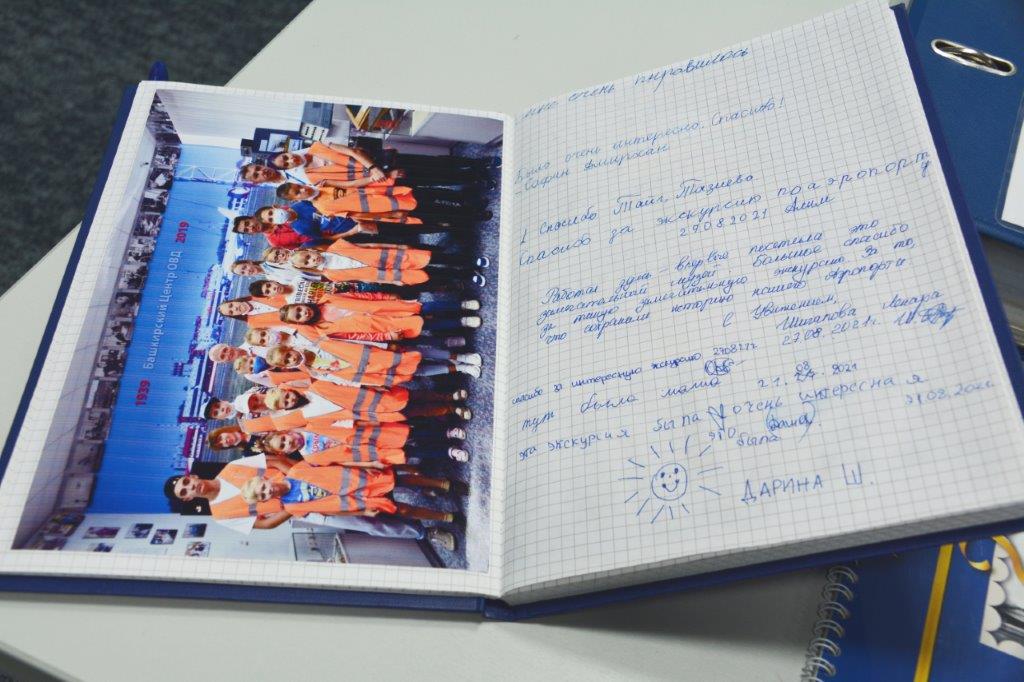 1939 Башкирский Центр ОВД 2019
мне очень нправилось
Было очень интересно. Спасибо!
Сафин Амирхан
Спасибо
Спасибо за экскурсию по аэропорту
27.08.2021 Алим
Работая здесь впервые посетила это
замечательный музей большое спасибо
за такую замечательную экскурсию. За то,
что сохранили историю нашего Аэропорта
С Уважением,
27.08.2021г.
спасибо за интересную экскурсию
тут была
21. 08 2021
эта экскурсия была очень интересная
это была
31.08.2022
ДАРИНА Ш.